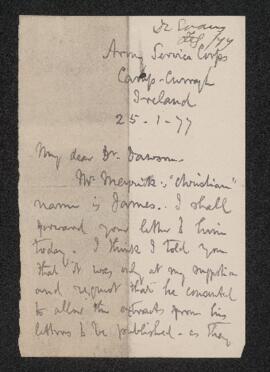 Army Service Corps
Camp - Curragh
Ireland
25-1-77
My dear Dr. Dawson.
Mr Meyrick's "Christian"
name is James. I shall
forward your letter to him
today. I think I told you
that it was only at my suggestion
and request that he consented
to allow the extracts from his
letters to be published - as they